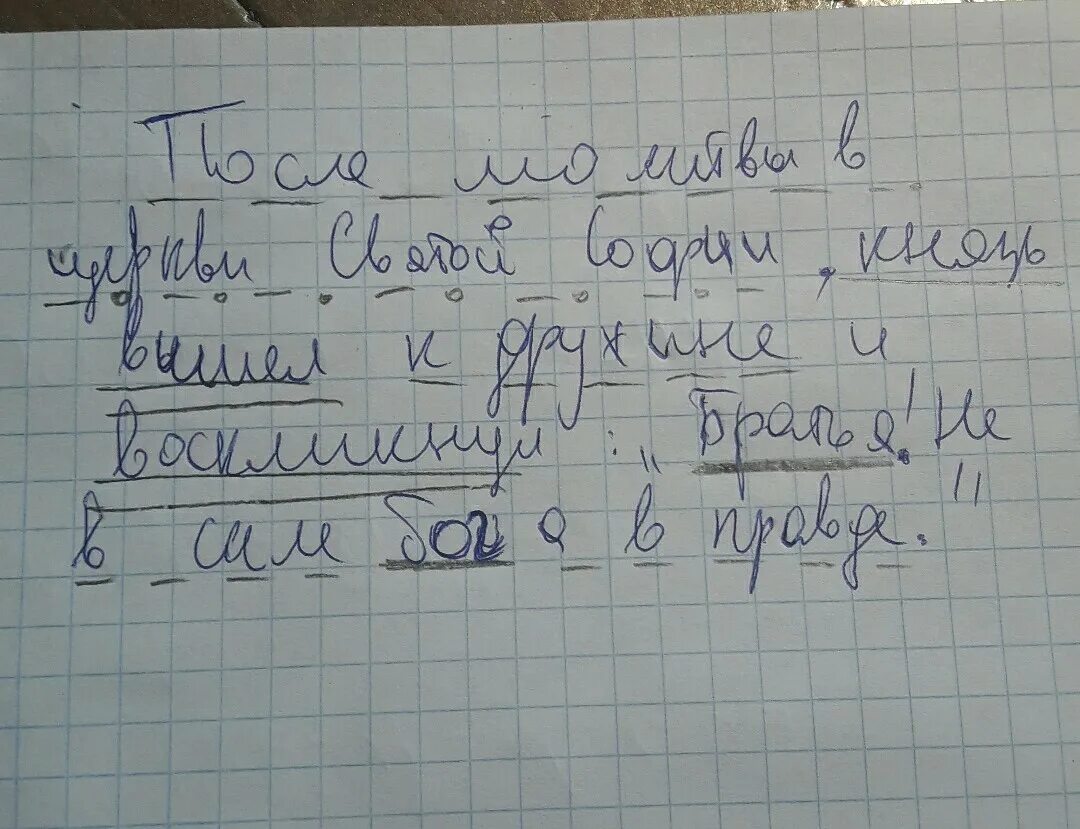 После момитвы в
церкви Святой Софии, князь
вышел к дружине и
воскликнул: „Братья! Не
в силе бог а в правде."